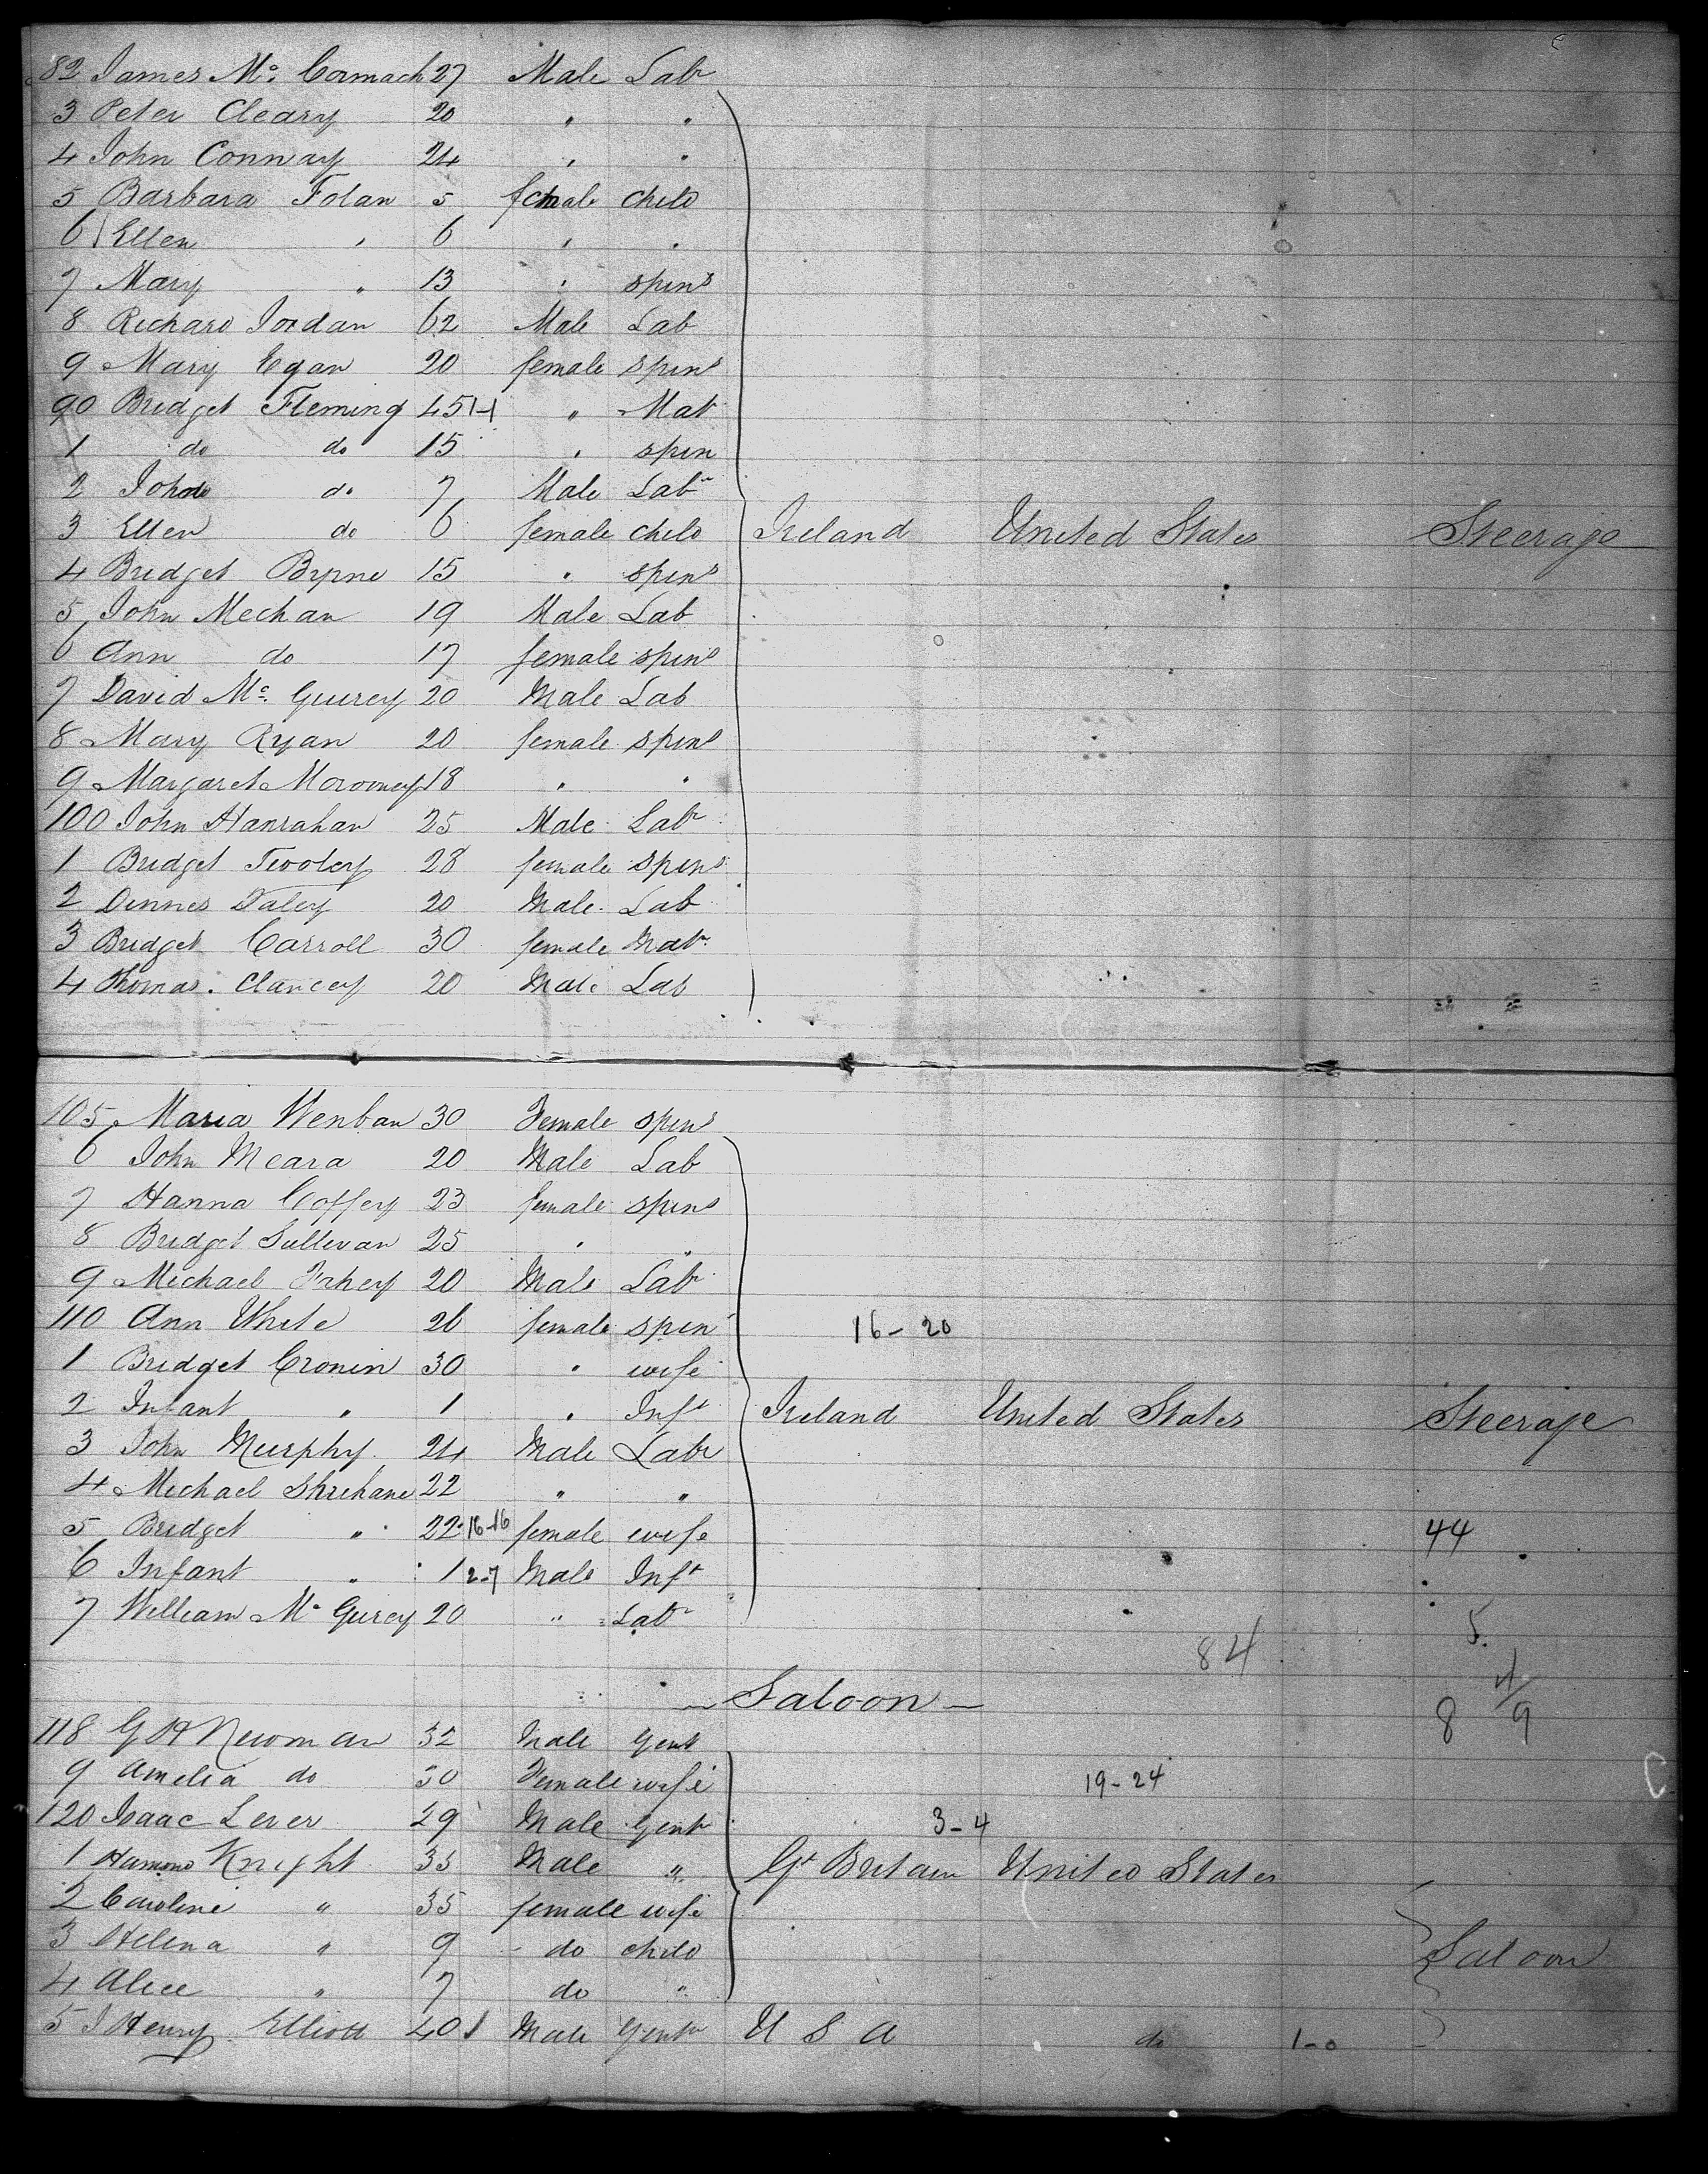 82 James Mc Cormach 27 Male Labr
3 Peter Cleary 20 " "
4 John Conway 24 " "
5 Barbara Folan 5 female child
6 Ellen " 6 " "
7 Mary " 13 " spins
8 Richard Jordan 62 Male Lab
9 Mary Egan 20 female spins
90 Bridget Fleming 45 1-1 " Mat
1 do do 15 " spin
2 John do 7 Male Labr
3 Ellen do 6 female child Ireland United States Steerage
4 Bridget Byrne 15 " spins
5 John Mechan 19 Male Lab
6 Ann do 17 female spins
7 David Mc Guirey 20 Male Lab
8 Mary Ryan 20 female spins
9 Margaret Morooney 18 " "
100 John Hanrahan 25 Male Labr
1 Bridget 28 female spins
2 Dinnes Daley 20 Male Lab
3 Bridget Carroll 30 female Mat
4 Thomas Clancey 20 Male Lab
105 Maria Wenban 30 Female spins
6 John Meara 20 Male Lab
7 Hanna Coffey 23 female spins
8 Bridget Sullivan 25 " "
9 Michael Fahey 20 Male Labr
110 Ann White 26 female spin 16-20
1 Bridget Cronin 30 " wife
2 Infant " 1 " Inft Ireland United States Steerage
3 John Murphy 24 Male Labr
4 Michael Shrihane 22 " "
5 Bridget " 22 16-16 female wife 44
6 Infant " 1 2-7 Male Inft
7 William Mc Gurey 20 " Labr
84 5
Saloon 4
118 G H Newman 32 Male Gent 8 9
9 Amelia do 30 Female wife 19-24
120 Isaac Lever 29 Male Gentn 3-4
1 Hamond Knight 35 Male " Gt Britain United States
2 Caroline " 35 female wife
3 Helena " 9 do child Saloon
4 Alice " 7 do "
5 J Henry Elliott 40 1 Male Gentn U S A do 1-0